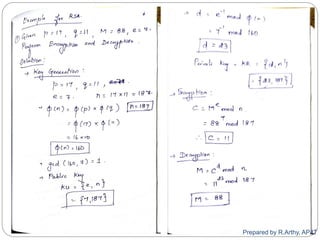 Example for RSA
① Given P=17, q=11, M=88, e=7.
Perform Encryption and Decryption.
Solution:
→ Key Generation:
P=17, q=11,
e=7. n=17×11=187.
→ φ(n) = φ(p) × φ(q) n=187
= φ(17) × φ(11)
= 16×10
φ(n)=160
→ gcd(160,7)=1.
→ Public Key
KU = {e,n}
= {7,187}
→ d = e⁻¹ mod φ(n)
= 7⁻¹ mod 160
d = 23
Private key = KR = {d,n}
= {23,187}
→ Encryption:
C = Mᵉ mod n
= 88⁷ mod 187
∴ C = 11
→ Decryption:
M = Cᵈ mod n
= 11²³ mod 187
M = 88
Prepared by R.Arthy, AP/IT